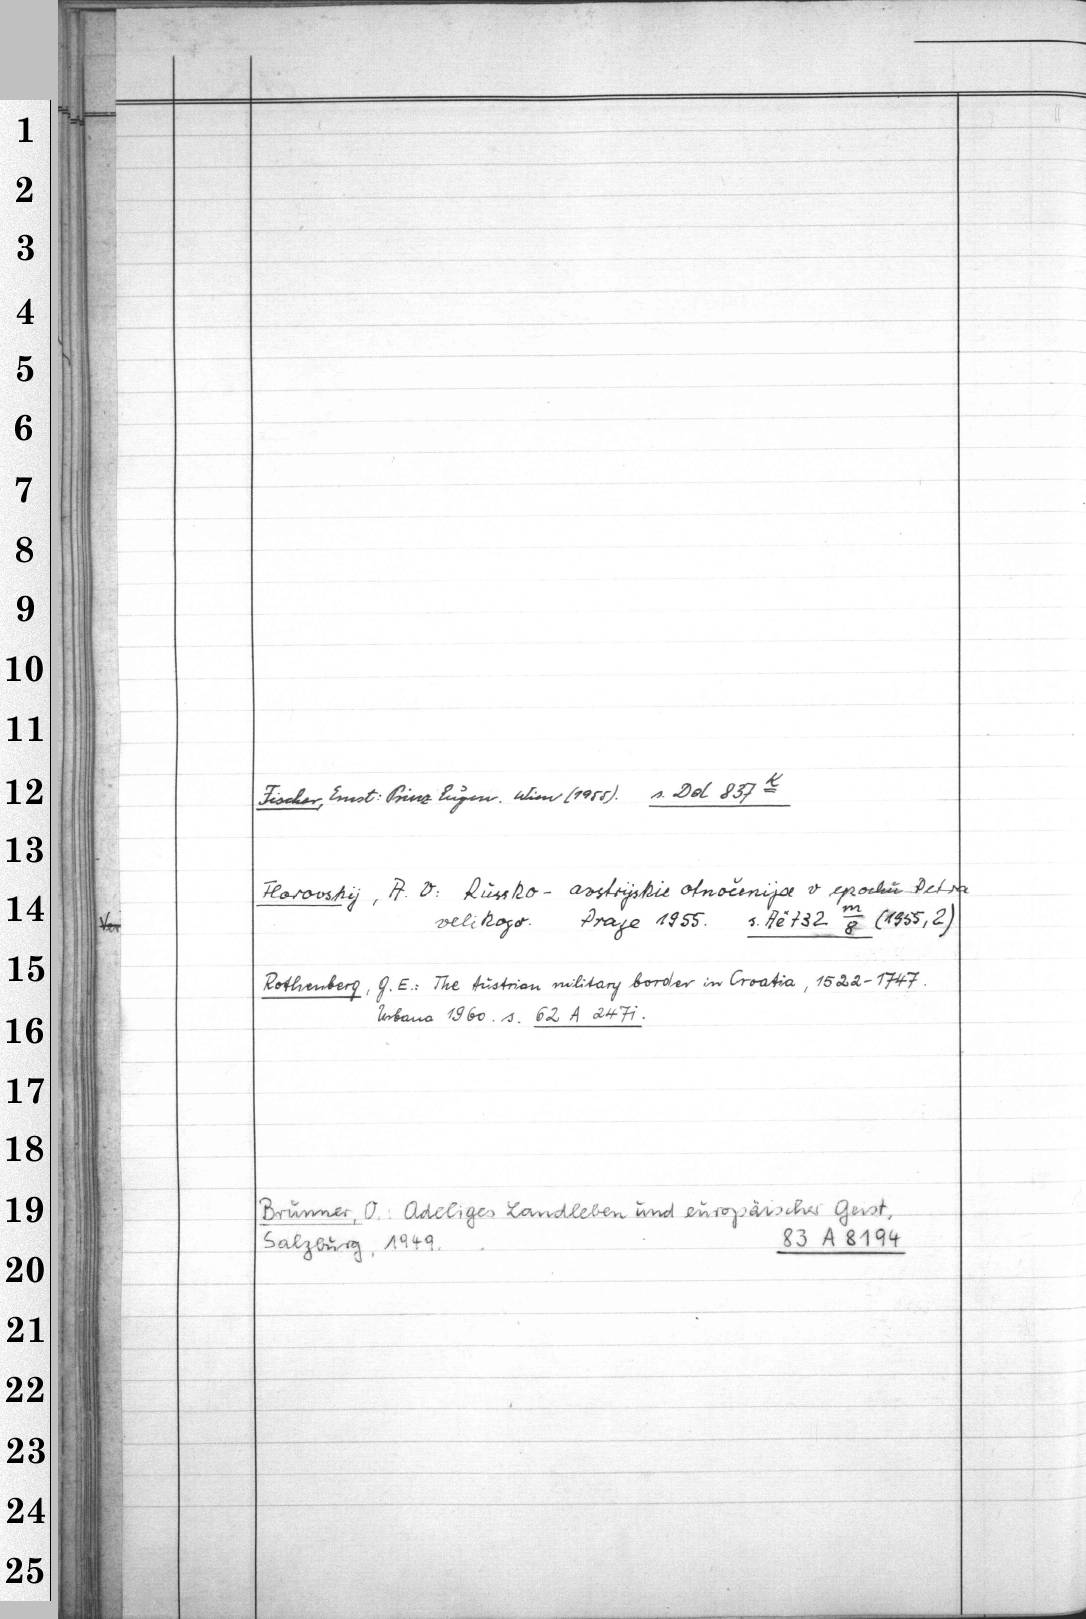 1
2
3
4
5
6
7
8
9
10
11
12
13
14
15
16
17
18
19
20
21
22
23
24
25
Fischer, Ernst: Prinz Eugen. Wien (1955). s. Dd 837 K
Florovskij, A. V: Russko - avstrijskie otnočenija v epochu Petra
velikogo. Prage 1955. s. Aé 732 m/8 (1955, 2)
Rothenberg, G. E.: The Austrian military border in Croatia, 1522-1747.
Urbana 1960. s. 62 A 247i.
Brunner, O.: Adeliges Landleben und europäischer Geist,
Salzburg, 1949. 83 A 8194